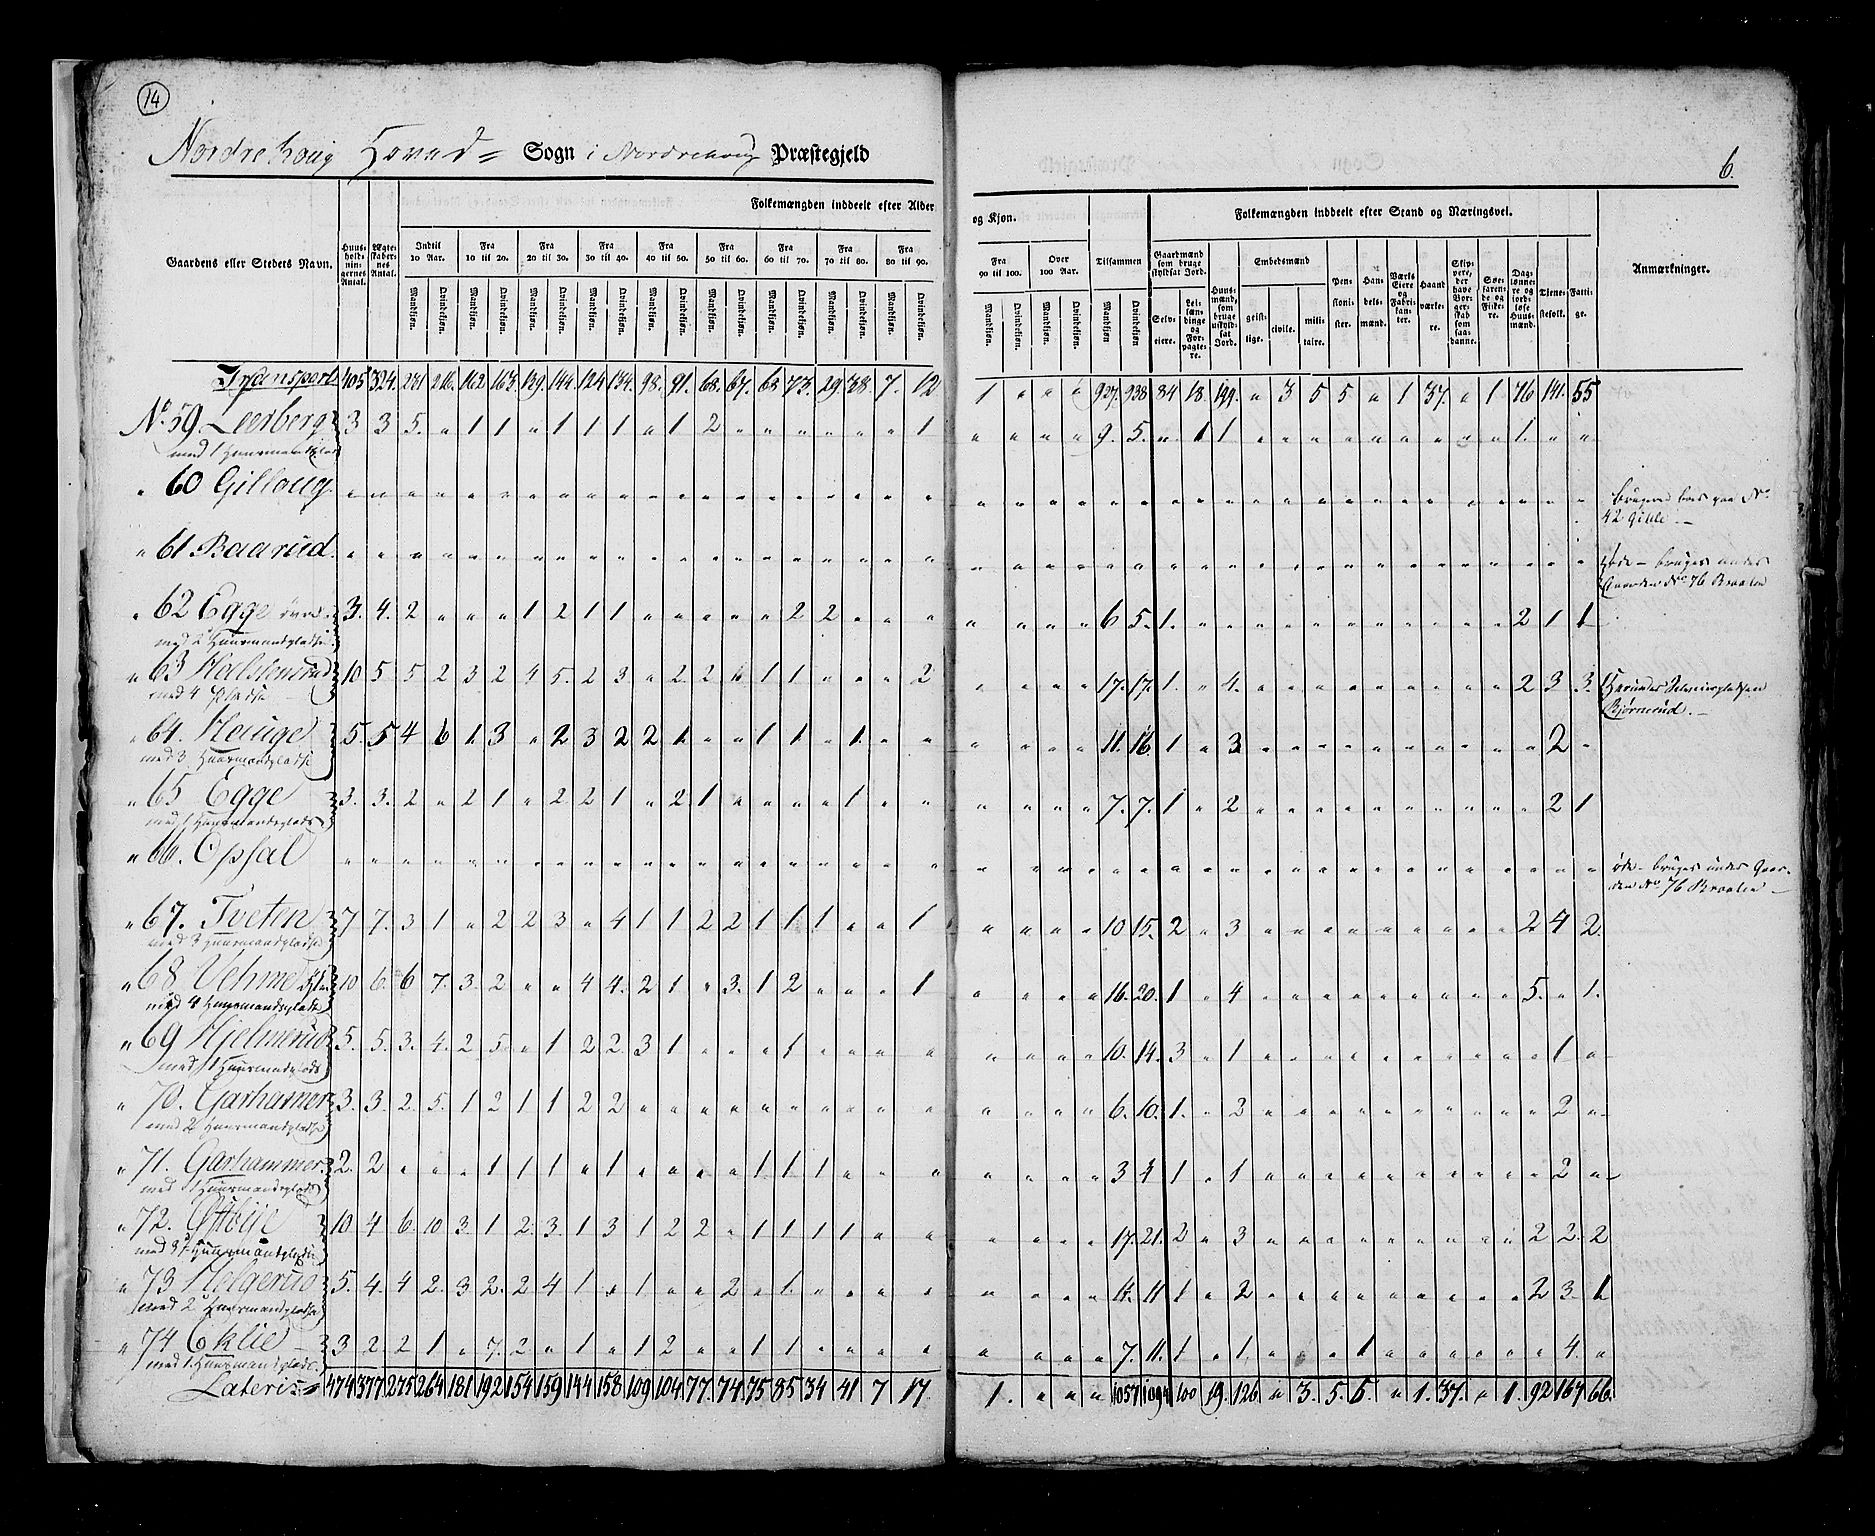 14
Nordrehoug Hoved= Sogn i Nordrehoug Præstegjeld
6.
Folkemængden inddeelt efter Alder og Kjøn.
Folkemængden inddeelt efter Stand og Næringsvei.
Gaardens eller Stedets Navn.
Huusholdningernes Antal.
Ægteskabernes Antal.
Indtil 10 Aar.
Fra 10 til 20.
Fra 20 til 30.
Fra 30 til 40.
Fra 40 til 50.
Fra 50 til 60.
Fra 60 til 70.
Fra 70 til 80.
Fra 80 til 90.
Fra 90 til 100.
Over 100 Aar.
Tilsammen
Mandkjøn. Qvindekjøn.
Gaardmænd som bruge skyldsat Jord.
Selveiere.
Leilændinge og Forpagtere.
Huusmænd, som bruge uskyldsat Jord.
Embedsmænd
geistlige. civile. militaire.
Pensionister.
Handelsmænd.
Værks Eiere og Fabrikanter.
Haandværkere.
Skippere, der have Borgerskab som saadanne.
Søefarende og Fiskere.
Daglønnere og jordløse Huusmænd.
Tjenestefolk.
Fattige.
Anmærkninger.
Transport 405 324 231 216. 112 163. 139. 144 124 134. 98. 91. 68. 67. 63 73. 29. 38. 7. 12 1 " " " 927. 938 84 18. 199. " 3 5 5 " 1 37. " 1 76 141. 55
No. 59. Leerberg 3 3 5. " 1 1 " 1 1 1 " 1 2 " " " " " " 1 " " " " 9. 5. " 1 1 " " " " " " " " " 1. " "
med 1 Huusmandsplads
" 60 Gilloug
Brugeren boer paa No
42 Gihle. —
" 61 Baarud.
øde — bruges under
Gaarden No 76 Braaten
" 62 Egge øvre 3. 4. 2 " " " 1 2 1 1 " " " " " 2 2 " " " " " " " 6 5. 1. " " " " " " " " " " " 2 1 1
med 2 Huusmandspladse
" 63 Halstenrud 10 5 5 2 3 2 4 5. 2 3 " 2 2 " 1 1 " " " 2 " " " " 17. 17. 1. " 4. " " " " " " " " " 2 3 3.
med 4 Pladse
Herunder
Bjørnerud. —
" 64. Hauge 5. 5 4 6 1. 3 " 2 3 2 2 1 " " 1 1 " 1. " " " " " " 11. 16. 1 " 3 " " " " " " " " " " 2 "
med 3 Huusmandspladse
" 65 Egge 3. 3. 2 " 2 1 " 2 2 1 " 2 1 " " " " 1 " " " " " " 7. 7. 1 " 2 " " " " " " " " " " 2 1
med 1 Huusmandsplads
" 66. Opsal
øde — bruges under Gaar-
den No 76 Braaten —
" 67. Tveten 7 7. 3 1 " 2 2 3 " 4 1 1 2 2 1 1 1 " " 1 " " " " 10 15. 2 " 3 " " " " " " " " " 2 4 2.
med 3 Huusmandspladse
" 68 Vehme 10 6. 6 7. 3. 2 " " 4 4. 2 1 " 3. 1 2 " " " 1 " " " " 16. 20. 1 " 4 " " " " " " " " " 5. " 1.
med 4 Huusmandspladse
" 69 Hjelmerud 5. 5. 3. 4. 2 5. " 1 2 2. 3 1 " " " 1 " " " " " " " " 10. 14. 3 " 1 " " " " " " " " " " 1 "
med 1 Huusmandsplads
" 70. Garhamer 3. 3. 2. 5. 1 2 1 1 2 2 " " " " " " " " " " " " " " 6. 10. 1. " 2 " " " " " " " " " " 2 "
med 2 Huusmandspladse
" 71. Garhammer. 2. 2 " " " 1 1 1 " 1 " " " 1 1 1 " " " " " " " 3 4 1 " 1 " " " " " " " " " " 2 "
med 1 Huusmandsplads
" 72. Østbye 10 4 6. 10 3. 1 2. 3. 1 3 1 2 2 " 1 1 1 1 " " " " " " 17. 21. 2 " 3 " " " " " " " " " 2 2. 2
med 3 Huusmandspladse
" 73 Helgerud 5. 4. 4 2. 3 2. 2 4 1 " 1 " " 2 " 1. " " " " " " " " 11. 11 1 " 2 " " " " " " " " " 2 3. 1
med 2 Huusmandspladse
" 74 Eklie 3 2 2 1 " 7. 2 " 1 " 1 2 " " 1 1 " " " " " " " " 7. 11. 1 " 1. " " " 1 " " " " " " 4. "
med 1 Huusmandsplads
Lateris = 474 377 275 264 181 192 154 159 144 158 109 104. 77. 74. 75 85 34 41 7 17. 1. " " " 1057 1094 100 19. 126. " 3. 5. 6. " 1. 37. " 1. 92 167 66.